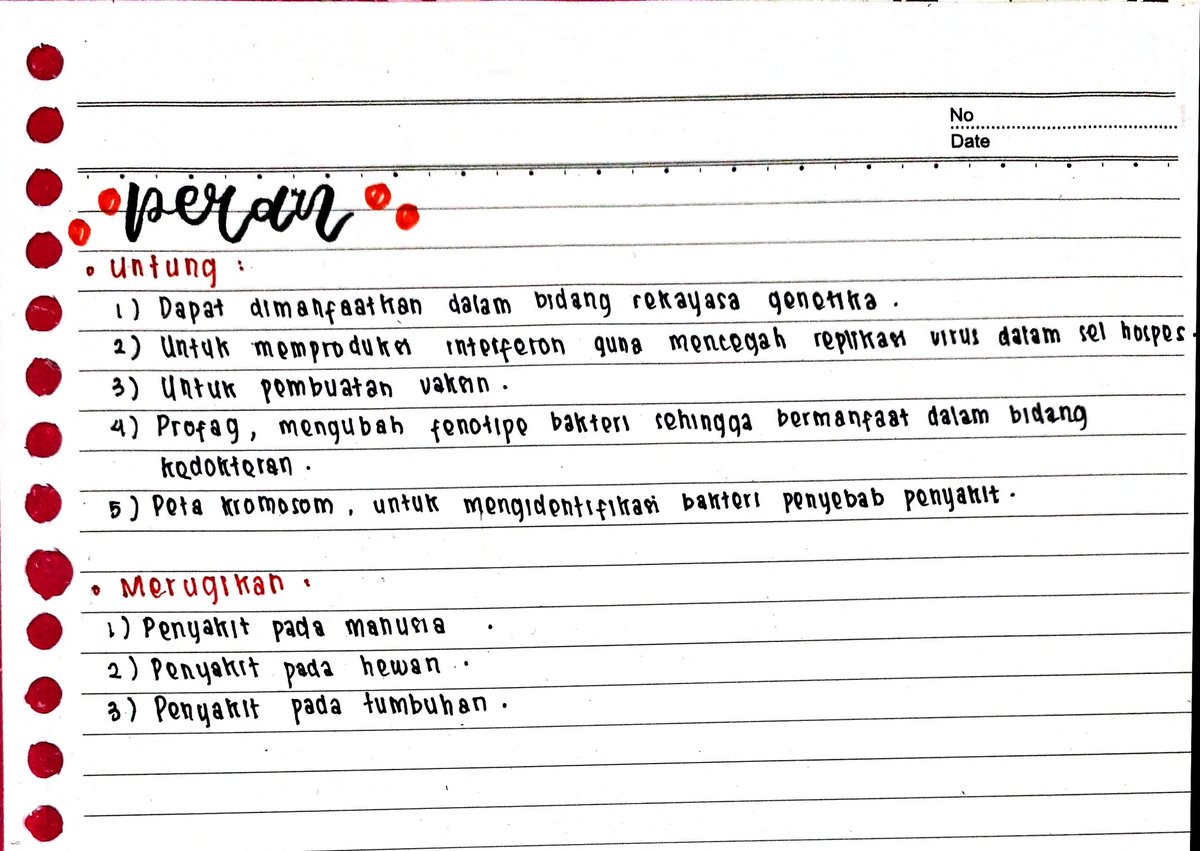 No
Date
peran
• Untung :
1) Dapat dimanfaatkan dalam bidang rekayasa genetika .
2) Untuk memproduksi interferon guna mencegah replikasi virus dalam sel hospes.
3) Untuk pembuatan vaksin .
4) Profag , mengubah fenotipe bakteri sehingga bermanfaat dalam bidang
kedokteran .
5) Peta kromosom , untuk mengidentifikasi bakteri penyebab penyakit .
• Merugikan :
1) Penyakit pada manusia .
2) Penyakit pada hewan .
3) Penyakit pada tumbuhan .